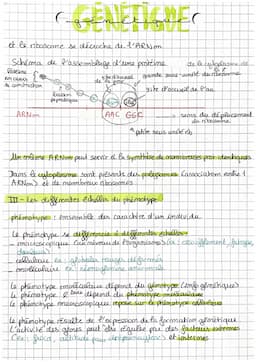 GÉNÉTIQUE
et le ribosome se décroche de l'ARNm
Schéma de l'assemblage d'une protéine
Protéine en cours de construction
liaison peptidique
grande sous-unité du ribosome
site d'accueil de l'aa
ARNm
AAC GGC
sens du déplacement du ribosome
petite sous unité rb
Un même ARNm peut servir à la synthèse de nombreuses prot identiques
Dans le cytoplasme sont présents des polysomes (association entre 1
ARNm) et de nombreux ribosomes
III - Les différentes échelles du phénotype
phénotype : Ensemble des caractères d'un individu
Le phénotype se différencie à différentes échelles
- macroscopique (au niveau de l'organisme) ex : essoufflement, fatigue,
- cellulaire ex : globules rouges déformés
- moléculaire ex : hémoglobine anormale
Le phénotype moléculaire dépend du génotype (emb génétique)
Le phénotype dépend du phénotype moléculaire
Le phénotype macroscopique repose sur le phénotype
Le phénotype résulte de l'expression de l'information génétique
L'activité des gènes peut être régulée par des facteurs externes
(ex : froid, altitude) et internes